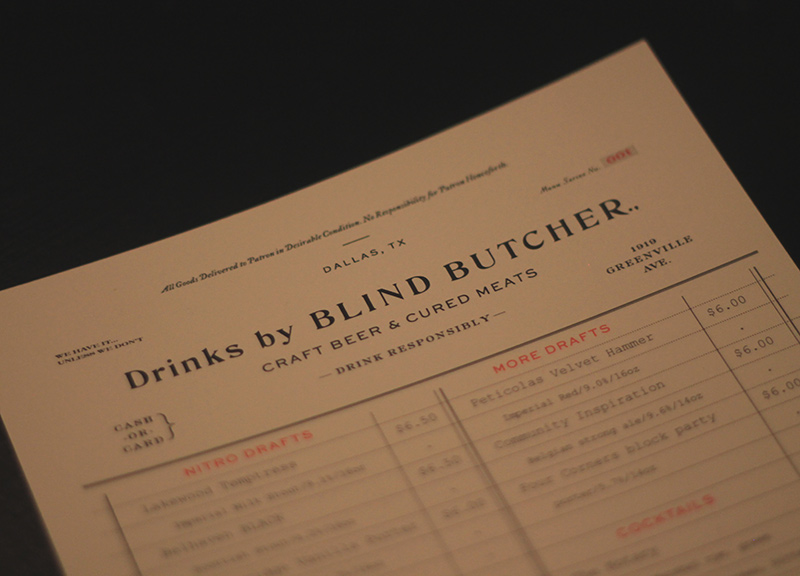 All Goods Delivered to Patron in Desirable Condition. No Responsibility for Patron Henceforth.
Menu Series No. 001
DALLAS, TX
WE HAVE IT...
UNLESS WE DON'T
Drinks by BLIND BUTCHER..
1919
GREENVILLE
AVE.
CRAFT BEER & CURED MEATS
—DRINK RESPONSIBLY—
CASH
-OR-
CARD
NITRO DRAFTS
Lakewood Temptress $6.50
Imperial Milk Stout/9.1%/14oz
Belhaven BLACK $6.50
Vanilla Porter
MORE DRAFTS
Peticolas Velvet Hammer $6.00
Imperial Red/9.0%/16oz
Community Inspiration $6.00
Belgian strong ale/9.6%/14oz
Four Corners block party $6.00
porter/5.7%/14oz
COCKTAILS